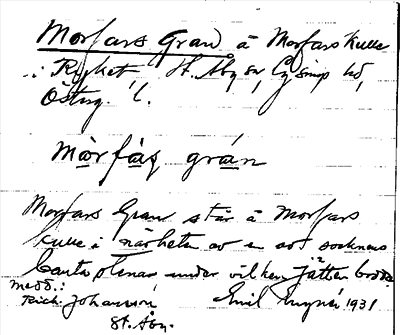 Morfars Gran å Morfars Kulle
i Ryket, St. Åby sn, Lysings hd,
Österg. l.
mòrfàş grán
Morfars Gran står å Morfars
kulle i närheten av en av socknens
bautastenar under vilken jätten bodde.
Medd.:
Rich. Johansson
St. Åby.
Emil 1931